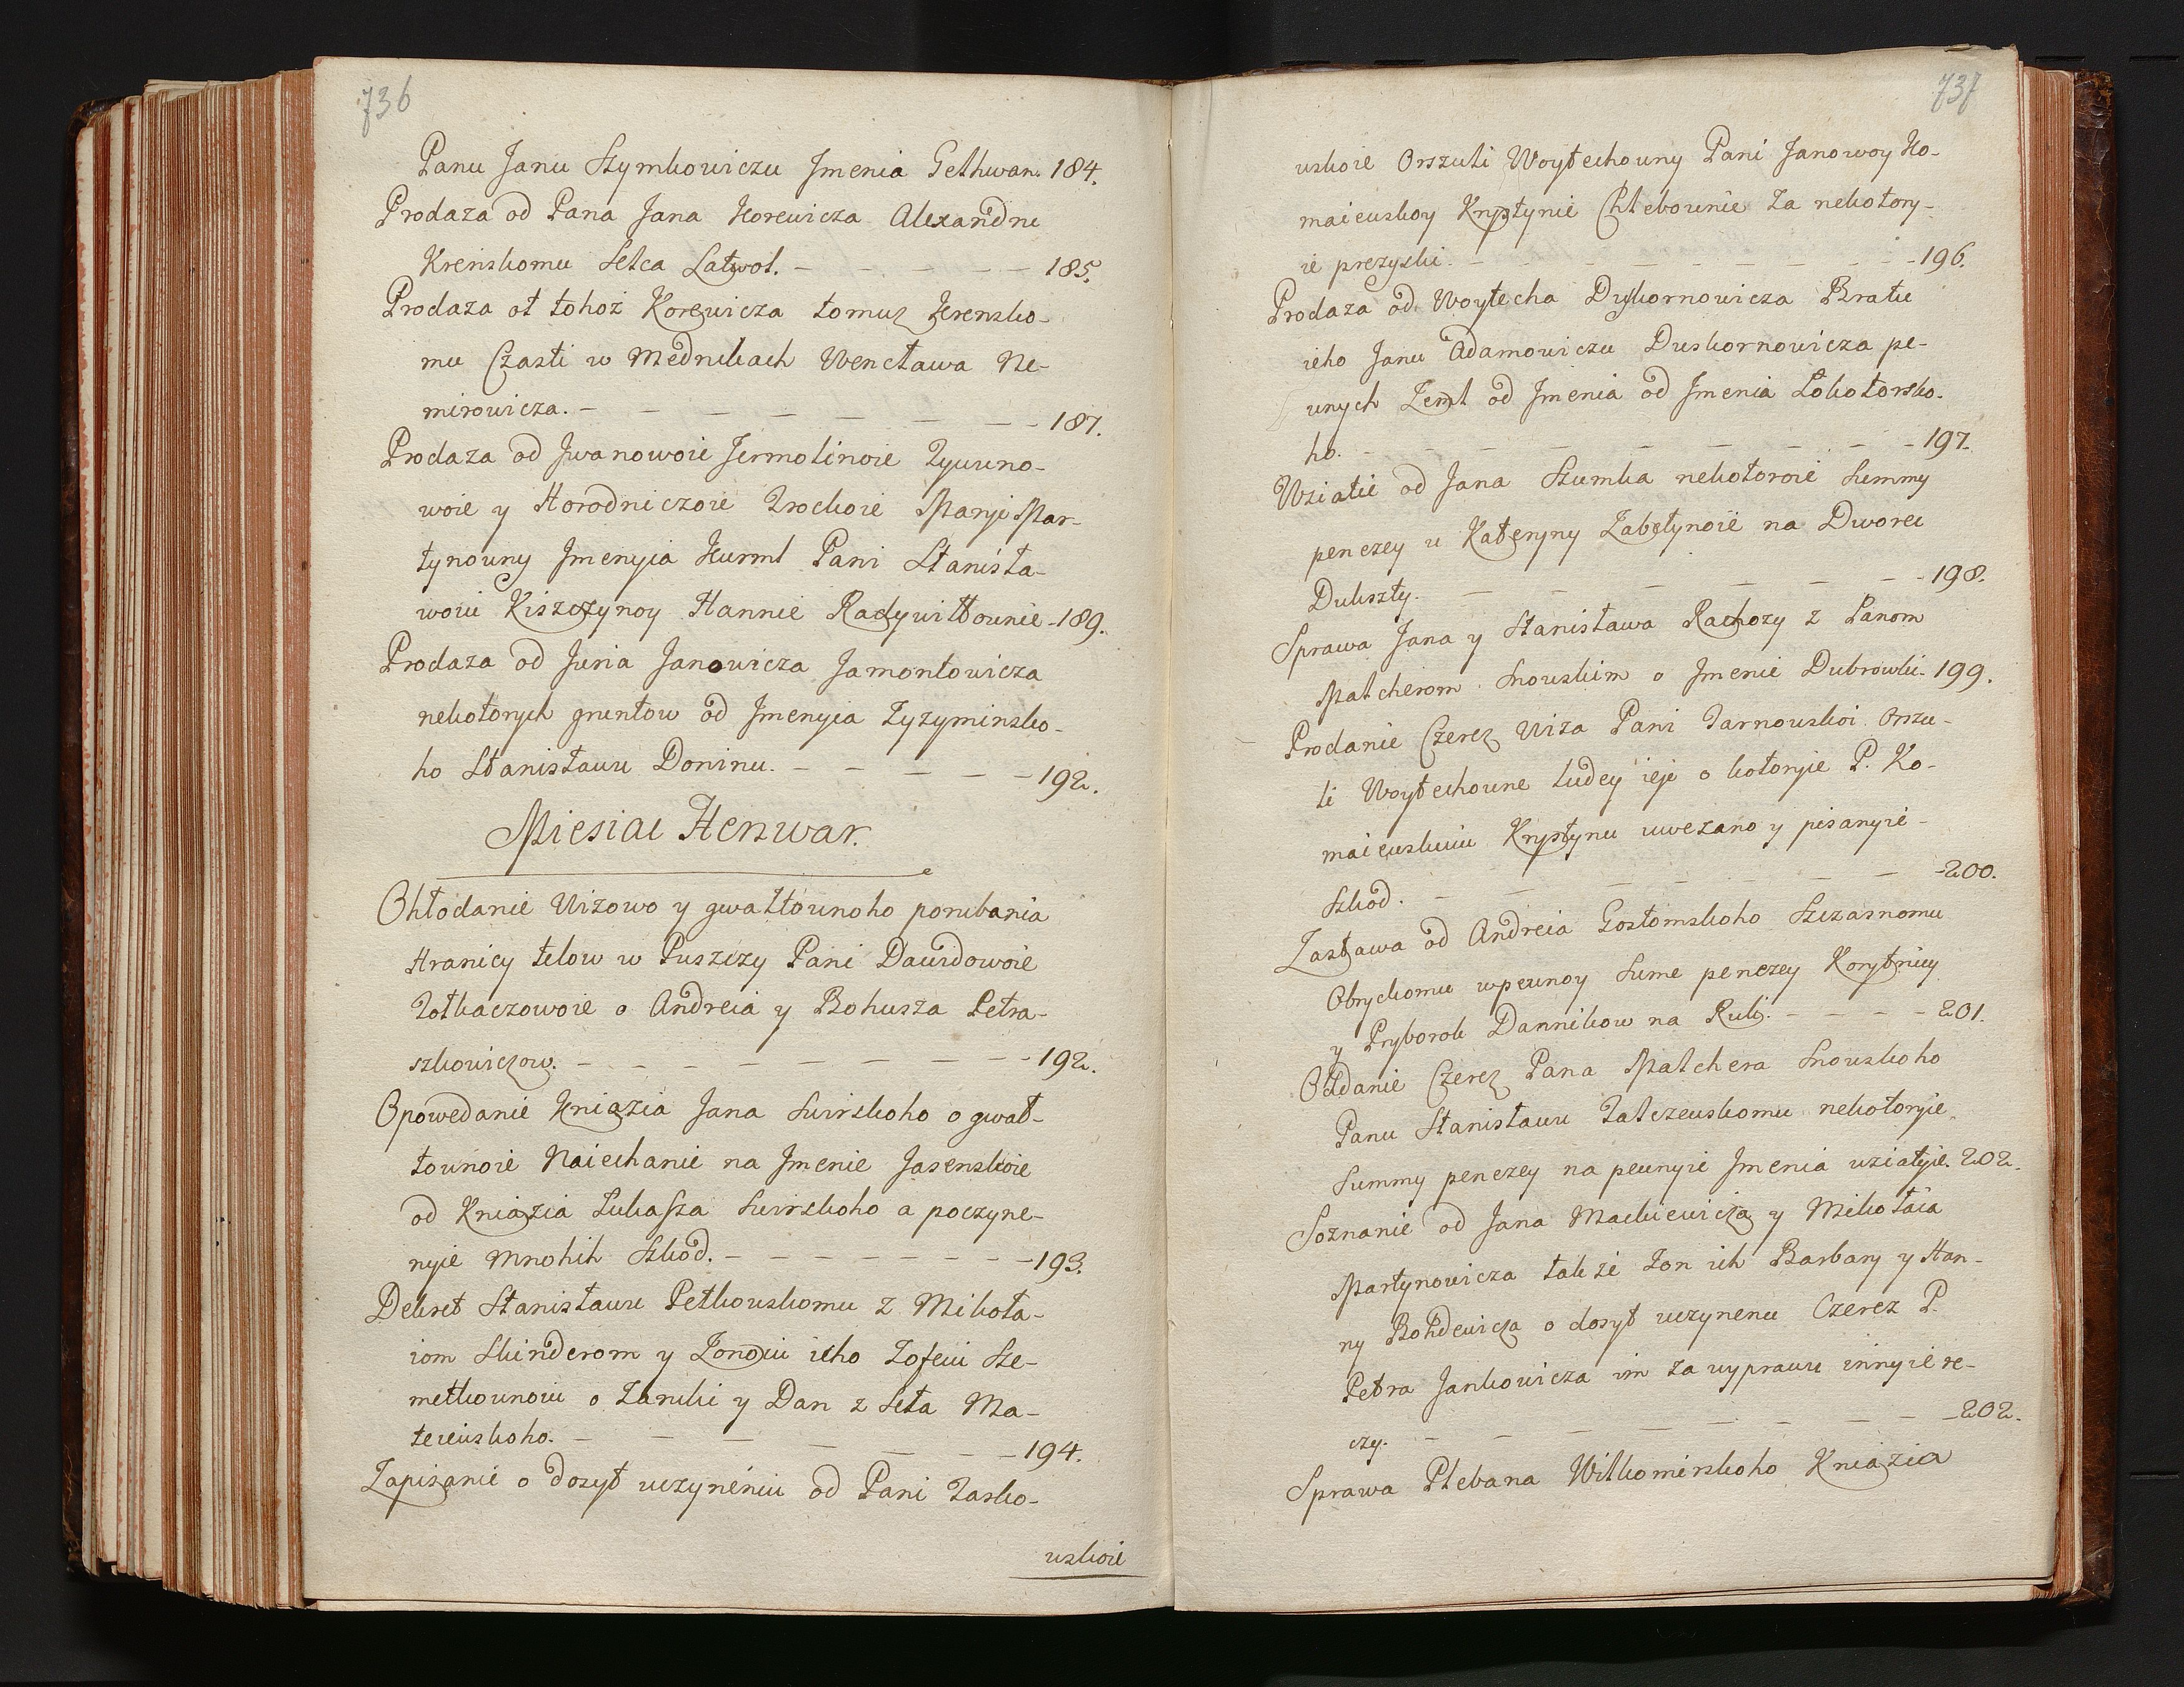 736
Panu Janu Szymkowiczu Jmenia Gethwan. 184.
Prodaza od Pana Jana Korewicza Alexandru
Krenskomu Selca Łatwol. - - - - - 185.
Prodaza ot tohoż Korewicza tomuz Krensko-
mu Czasti w Mednikach Wencława Ne-
mirowicza. - - - - - - - 187.
Prodaza od Jwanowoie Jermolinoie Tywuno-
woie y Horodniczoie Trockoie Maryi Mar-
tynowny Jmenyia Kurml Pani Stanisła-
wowi Kiszczynoy Hannie Radywiłłownie - 189.
Prodaza od Juria Janowicza Jamontowicza
nekotorych gruntow od Jmenyia Zyzyminsko-
ho Stanisławu Doninu. - - - - - 192.
Miesiac Henwar.
Ohłodanie Wizowo y gwałtownoho porubania
Hranicy telow w Puszczy Pani Dawidowoie
Tołkaczowoie o Andreia y Bohusza Petra-
szkowiczow. - - - - - - - 192.
Opowedanie Kniazia Jana Swirskoho o gwał-
townoie Naiechanie na Jmenie Jasenskoie
od Kniazia Łukasza Swirskoho a poczyne-
nyie mnohih Szkod. - - - - - - - 193.
Dekret Stanisławu Petkowskomu z Mikoła-
iom Skinderom y Żonoiu ieho Zofeiu Sze-
metkownoiu o Zaruki y Dan z Seła Ma-
teiewskoho. - - - - - - - 194.
Zapisanie o dosyt uczyneniu od Pani Tarko-
wskoie
737
wskoie Orszuli Woytechowny Pani Janowoy Ko-
maiewskoy Krystynie Chlebownie za nekotory-
ie prezyski. - - - - - - - - - 196.
Prodaza od Woytecha Dyskornowicza Bratu
ieho Janu Adamowiczu Duskornowicza pe-
wnych Zeml od Jmenia od Jmenia Łokotorsko-
ho. - - - - - - - - - 197.
Wziatie od Jana Szumka nekotoroie Summy
penezey u Kateryny Zabelynoie na Dworec
Dukszty. - - - - - - 198.
Sprawa Jana y Stanisława Rachozy z Panom
Malcherom Snowskim o Jmenie Dubrowki - 199.
Prodanie Czerez Wiza Pani Tarnowskoi Orszu-
li Woytechowne ludey ieje o kotoryie P. Ko-
maiewskuiu Krystynu uwezano y pisanyie
Szkod. - - - - - - - - 200.
Zastawa od Andreia Gostomskoho Szczasnomu
Obryckomu w pewnoy Sume penezey Korytnicy
y Pryborok Dannikow na Rusi. - - - - 201.
Oddanie Czerez Pana Malchera Snowskoho
Panu Stanisławu Talczewskomu nekotoryie
Summy penezey na pewnyie Jmenia wziatyie. 202.
Soznanie od Jana Mackiewicza y Mikołaia
Martynowicza także Żon ich Barbary y Han-
ny Bohdewicza o dosyt uczynenu Czerez P.
Petra Jankowicza im za wyprawu innyie re-
czy. - - - - - - - - 202.
Sprawa Plebana Wilkomirskoho Kniazia